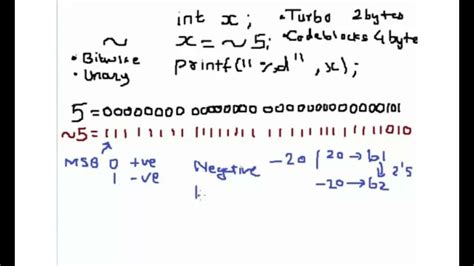 int x; • Turbo 2bytes
~ x = ~5; • Codeblocks 4byte
• Bitwise
• Unary printf("%d", x);
5 = 00000000 00000000 0000000000000101
~5 = 11111111 11111111 1111111111111010
MSB 0 +ve Negative -20 | 20 → b1
1 -ve ↓ 2's
-20 → b2